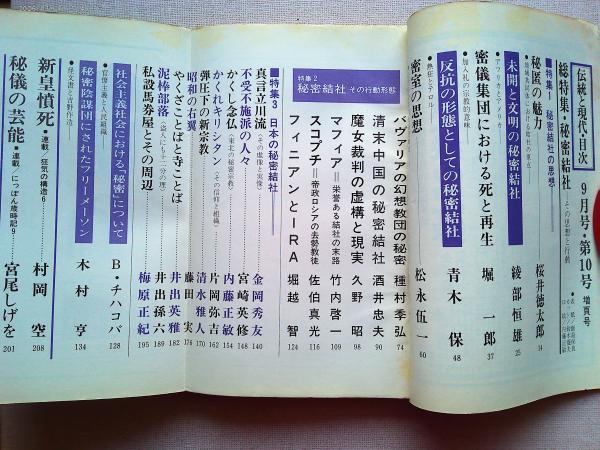 伝統と現代・目次 9月号・第10号 増頁号
総特集・秘密結社 その思想と行動
■特集1 秘密結社の思想
秘匿の魅力 桜井徳太郎 14
未開と文明の秘密結社 綾部恒雄 25
●アフリカとアメリカ
密儀集団における死と再生 堀一郎 37
●加入礼の宗教的意味
反抗の形態としての秘密結社 青木保 48
●熱狂とテロル
密室の思想 松永伍一 60
特集2
秘密結社 その行動形態
バヴァリアの幻想教団の秘密 種村季弘 74
清末中国の秘密結社 酒井忠夫 90
魔女裁判の虚構と現実 久野昭 98
マフィア=栄誉ある結社の末路 竹内啓一 109
スコプチ=帝政ロシアの去勢教徒 佐伯真光 116
フィニアンとIRA 堀越智 124
■特集3 日本の秘密結社
真言立川流〈その虚像と実像〉 金岡秀友 140
不受不施派の人々 宮崎英修 148
かくし念仏〈東北の秘密宗教〉 内藤正敏 154
かくれキリシタン〈その信仰と組織〉 片岡弥吉 162
弾圧下の新宗教 清水雅人 170
昭和の右翼 藤田実 176
やくざことばと寺ことば 井出英雅 182
泥棒部落〈盗人にも十二分の理〉 井出孫六 189
私設馬券屋とその周辺 梅原正紀 195
社会主義社会における「秘密」について B・チハコバ 128
●官僚主義と人民組織
秘密陰謀団にされたフリーメーソン 木村亨 134
●怪文書と吉野作造
新皇憤死●連載/狂気の構造6 村岡空 208
秘儀の芸能●連載/にっぽん歳時記9 宮尾しげを 201